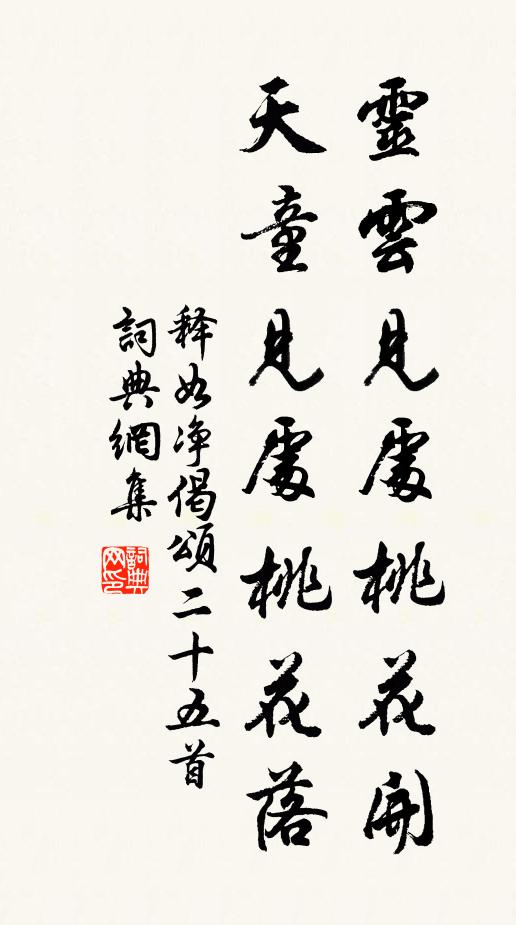 靈雲見處桃花開
天童見處桃花落
释如净偈頌二十五首
詞典網集
詞典网印